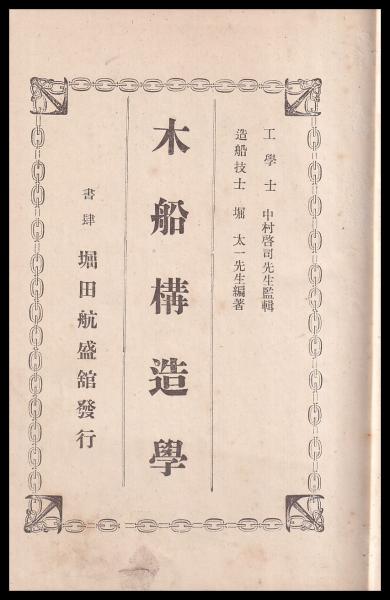 工學士 中村啓司先生監輯
造船技士 堀太一先生編著
木船構造學
書肆 堀田航盛舘發行